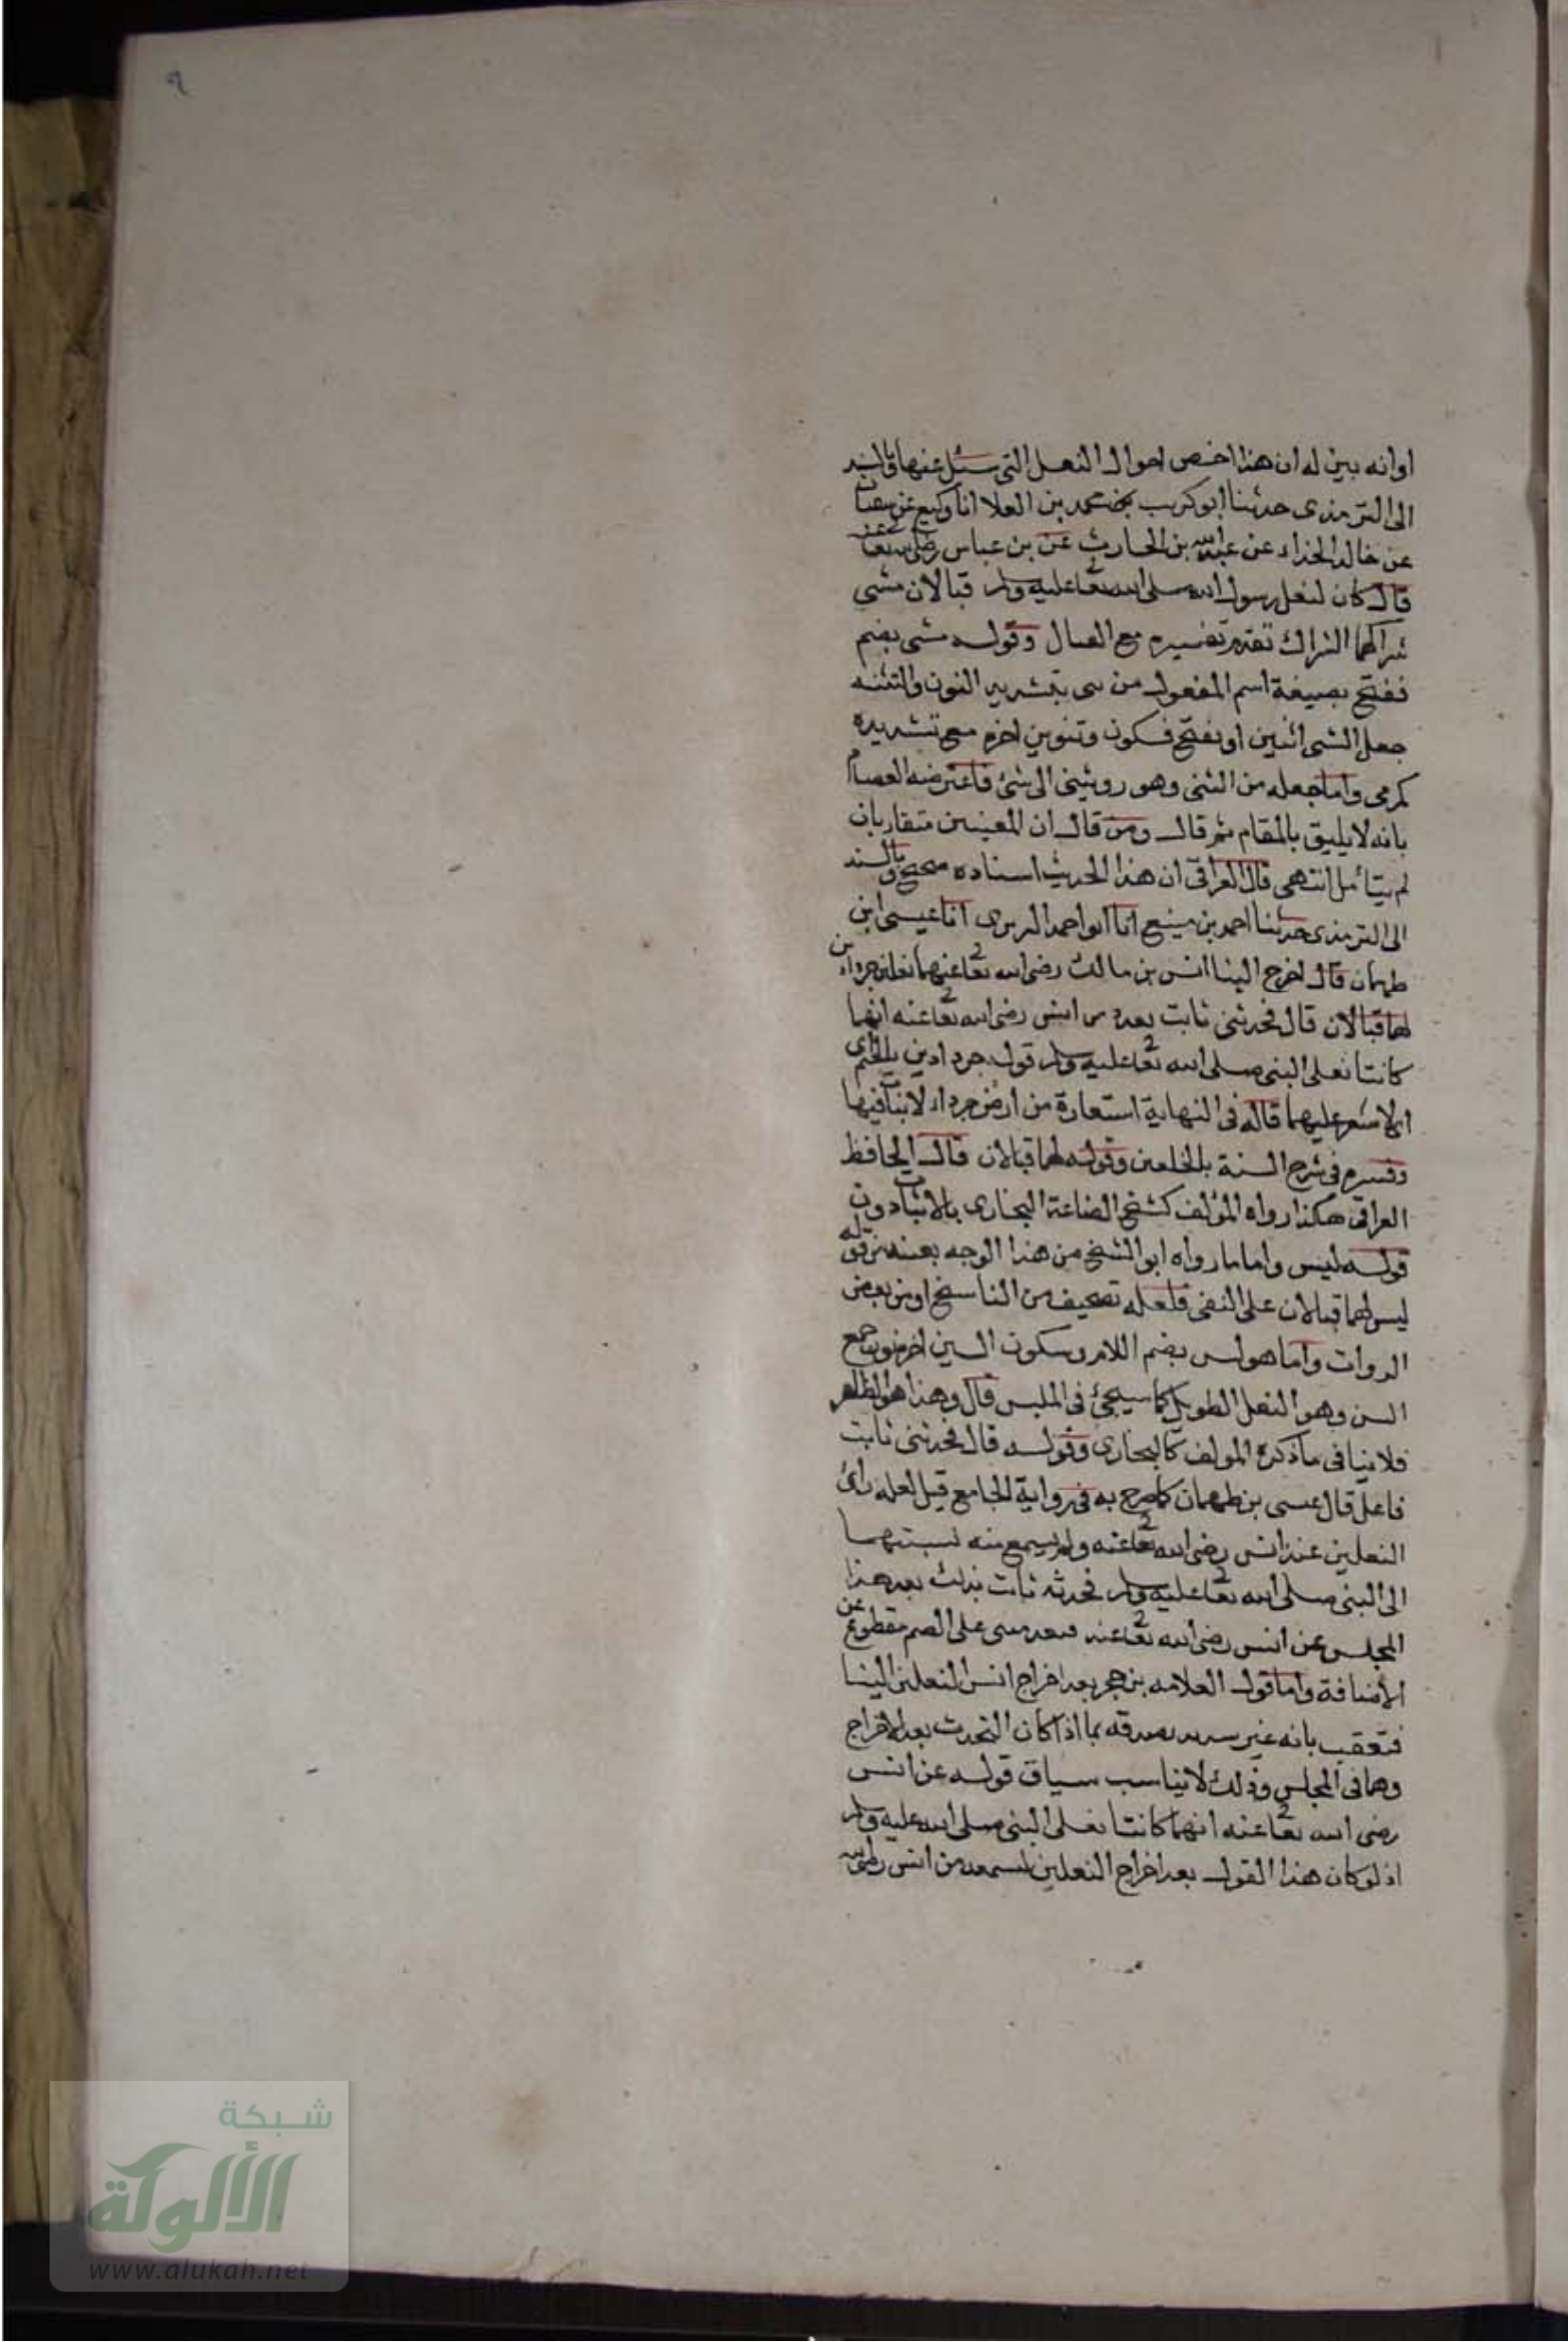 ٩
اوانه بين له ان هذا اخص احوال النعل التى سئل عنها وبالسند
الى الترمذى حدثنا ابو كريب محمد بن العلا انا وكيع عن سفيان
عن خالد الحذاء عن عبدالله بن الحارث عن بن عباس رضى الله تعا عنه
قال كان لنعل رسول الله صلى الله تعا عليه وسلم قبالان مثنى
شراكهما الشراك تقدم تفسيره مع القبال وقوله مثنى بضم
ففتح بصيغة اسم المفعول من ثنى بتشديد النون والتثنيه
جعل الشى اثنين او بفتح فسكون وتنوين اخره مع تشديده
كرمى واما جعله من الثنى وهو رد شئ الى شئ فاعترضه العصام
بانه لا يليق بالمقام ثم قال ومن قال ان المعنيين متقاربان
لم يتأمل انتهى قال العراقى ان هذا الحديث اسناده صحيح وبالسند
الى الترمذى حدثنا احمد بن منيع انا ابو احمد الزبيرى انا عيسى ابن
طهمان قال اخرج الينا انس بن مالك رضى الله تعا عنهما نعلين جرداوين
لهما قبالان قال فحدثنى ثابت بعد عن انس رضى الله تعا عنه انهما
كانتا نعلى النبى صلى الله تعا عليه وسلم قوله جرداوين بالجيم اى
لا شعر عليهما قاله فى النهاية استعارة من ارض جرداء لا نبات فيها
وفسره فى شرح السنة بالخلقين وقوله لهما قبالان قال الحافظ
العراقى هكذا رواه المؤلف كشيخ الصناعة البخارى بالاثبات دون
قوله ليس واما ما رواه ابو الشيخ من هذا الوجه بعينه من قوله
ليس لهما قبالان على النفى فلعله تصحيف من الناسخ او من بعض
الروات وانما هو لسن بضم اللام وسكون السين اخره نون جمع
السن وهو النعل الطويل كما سيجئ فى الملبس قال وهذا هو الظاهر
فلا ينافى ما ذكره المؤلف كالبخارى وقوله قال فحدثنى ثابت
فاعل قال عيسى بن طهمان كما صرح به فى رواية الجامع قيل لعله رأى
النعلين عند انس رضى الله تعا عنه ولم يسمع منه نسبتهما
الى النبى صلى الله تعا عليه وسلم فحدثه ثابت بذلك بعد هذا
المجلس عن انس رضى الله تعا عنه فبعد مبنى على الضم مقطوع عن
الاضافة واما قول العلامه بن حجر بعد اخراج انس النعلين الينا
فتعقب بانه غير سديد لصدقه بما اذا كان التحدث بعد الاخراج
وهما فى المجلس وذلك لا يناسب سياق قوله عن انس
رضى الله تعا عنه انهما كانتا نعلى النبى صلى الله عليه وسلم
اذ لو كان هذا القول بعد اخراج النعلين لسمعه من انس رضى الله
شبكة
الألوكة
www.alukah.net